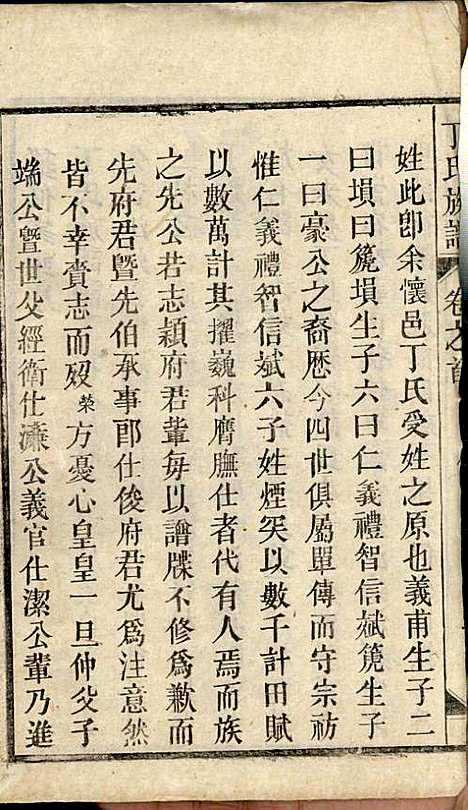 丁氏族譜 卷之首
姓此卽余懷邑丁氏受姓之原也義甫生子二
曰塤曰箎塤生子六曰仁義禮智信斌箎生子
一曰豪公之裔歷今四世俱屬單傳而守宗祊
惟仁義禮智信斌六子姓煙突以數千計田賦
以數萬計其擢巍科膺膴仕者代有人焉而族
之先公若志穎府君輩每以譜牒不修爲歉而
先府君暨先伯承事郎仕俊府君尤爲注意然
皆不幸賫志而歿榮方憂心皇皇一旦仲父子
端公暨世父經衛仕濂公義官仕潔公輩乃進